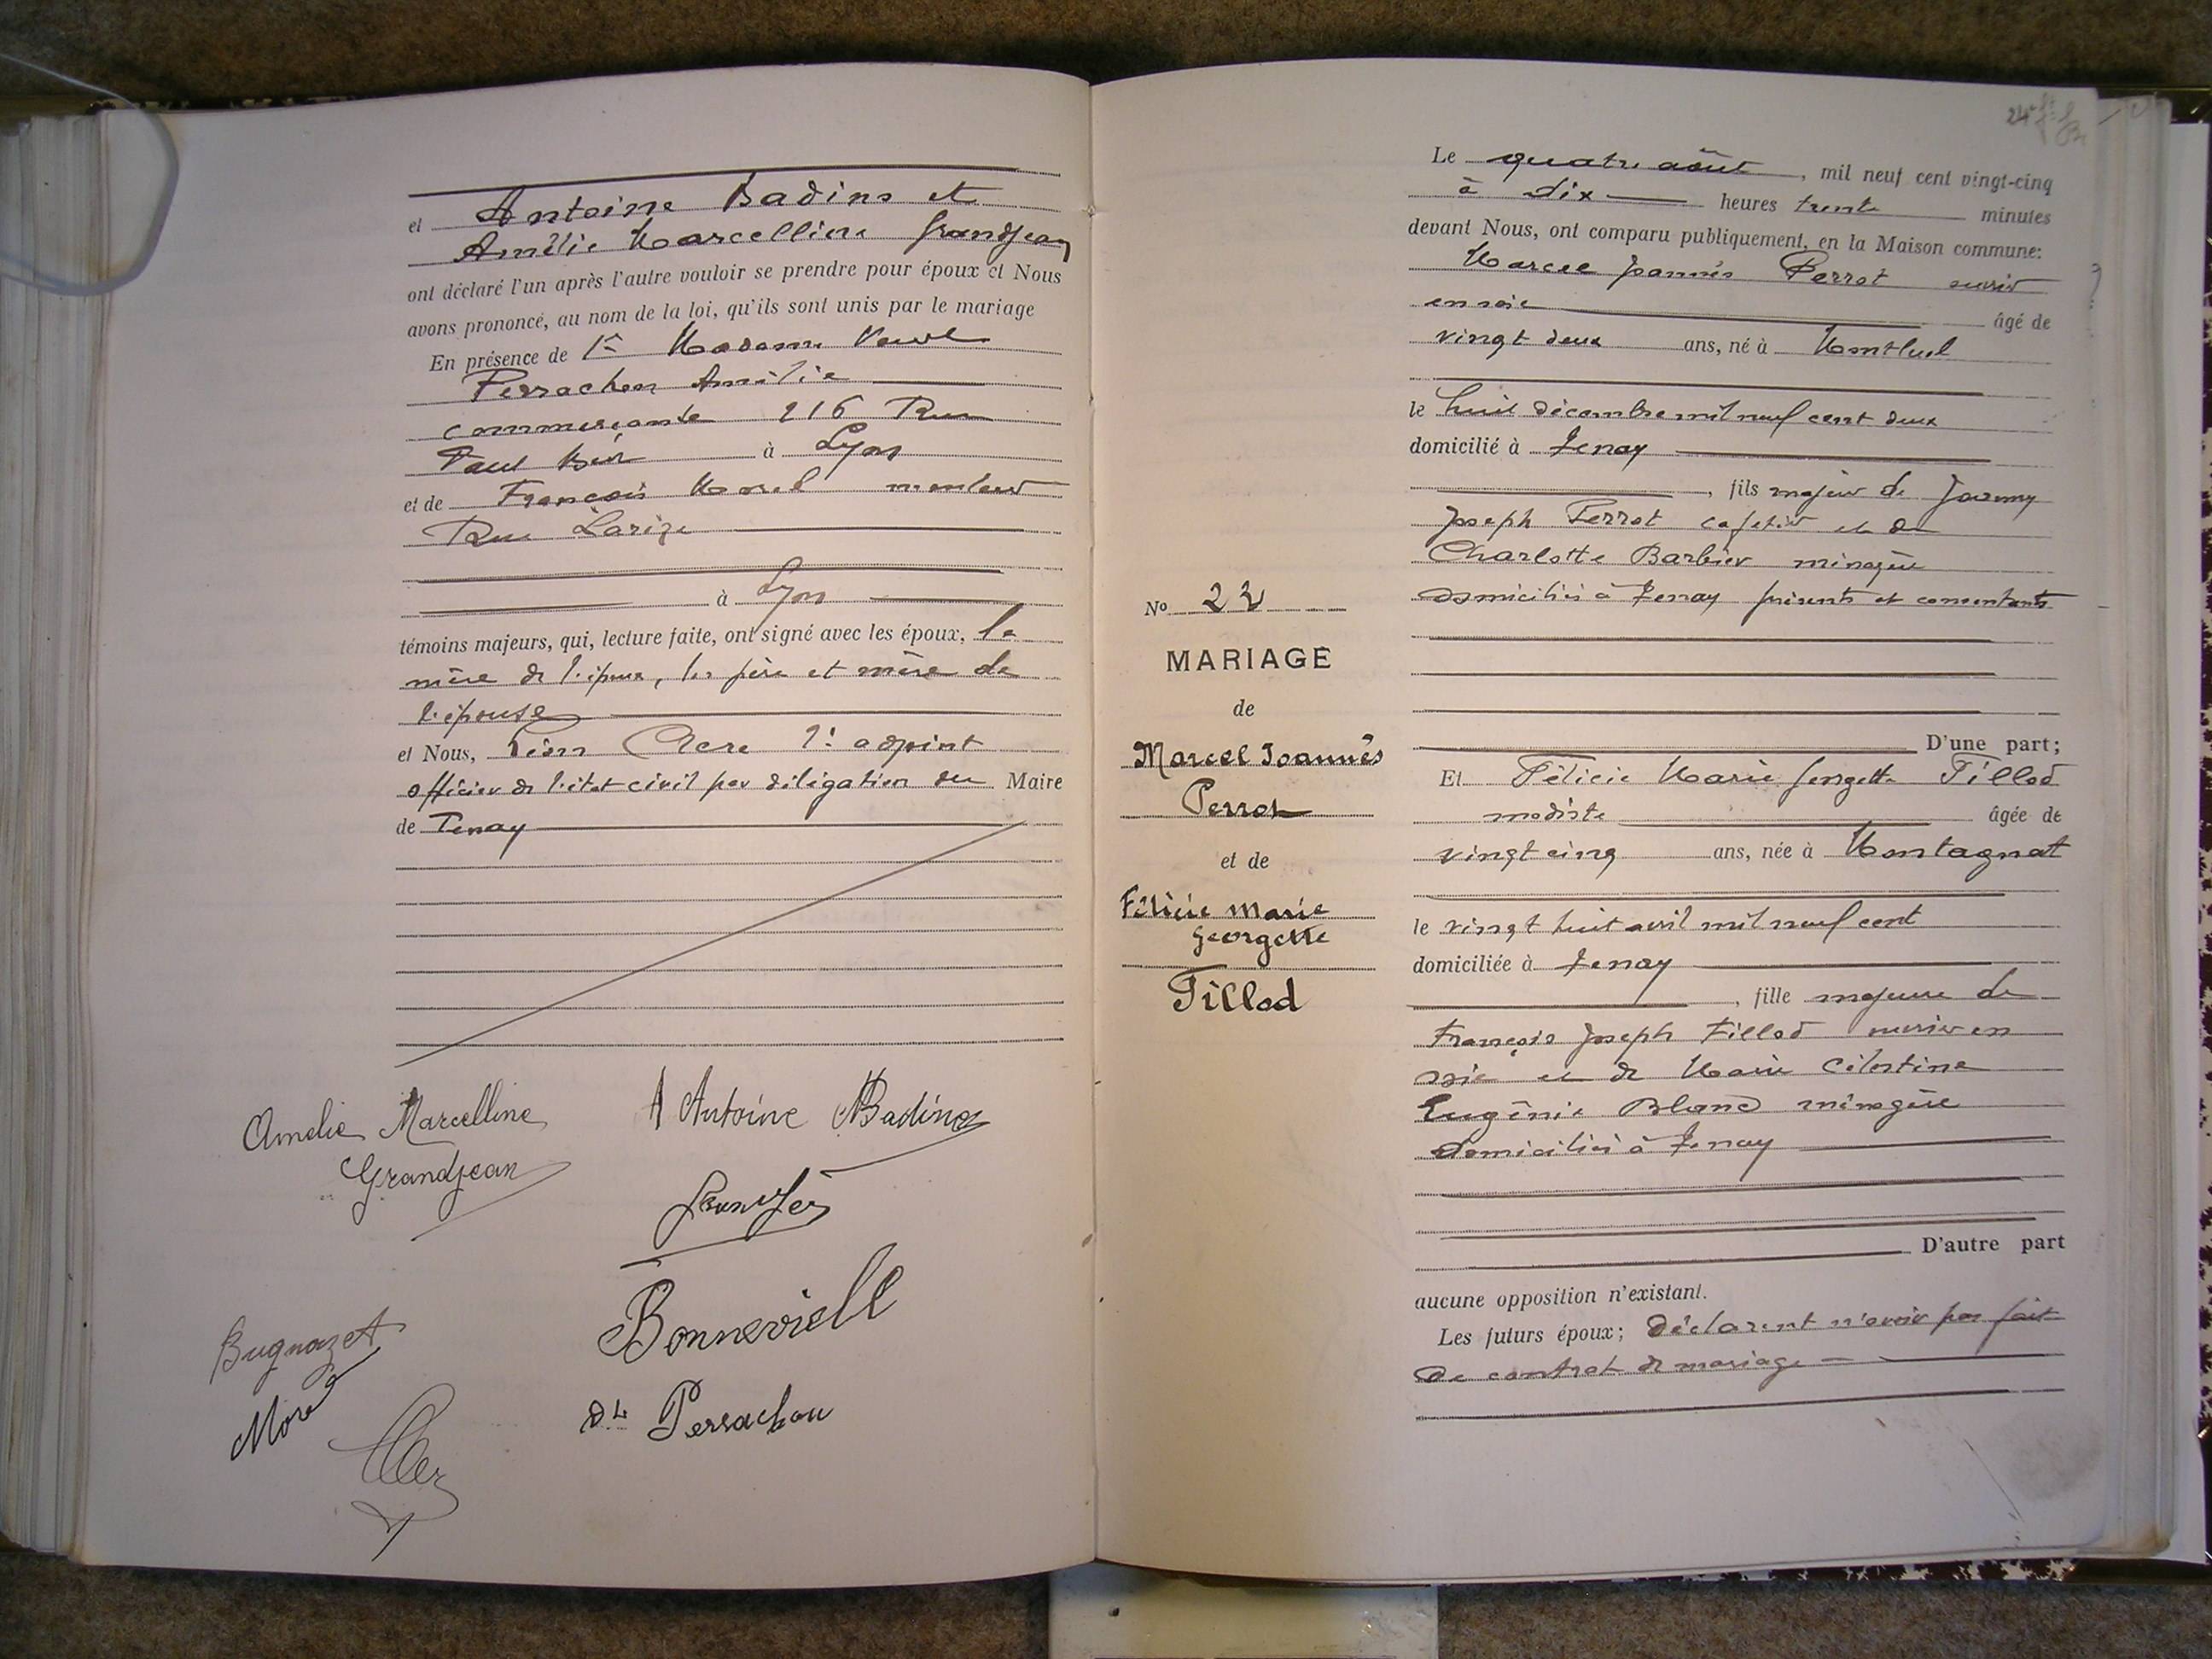 et Antoine Badino et
Amélie Marcelline Grandjean
ont déclaré l'un après l'autre vouloir se prendre pour époux et Nous
avons prononcé, au nom de la loi, qu'ils sont unis par le mariage
En présence de 1° Madame Veuve
Perrachon Amélie
commerçante 216 Rue
Paul Bert à Lyon
et de François Morel monteur
Rue
à Lyon
témoins majeurs, qui, lecture faite, ont signé avec les époux, la
mère de l'époux, les père et mère de
l'épouse
et Nous, 1er adjoint
officier de l'état civil par délégation du Maire
de Tenay
Amelie Marcelline
Grandjean
A Antoine Badino
Bonnevielle
Bugnazet
Morel
Perrachon
Le quatre août, mil neuf cent vingt-cinq
à dix heures trente minutes
devant Nous, ont comparu publiquement, en la Maison commune:
Marcel Joannès Perrot ouvrier
en soie âgé de
vingt deux ans, né à Montluel
le huit décembre mil neuf cent deux
domicilié à Tenay
, fils majeur de
Joseph Perrot cafetier et de
Charlotte Barbier ménagère
domiciliés à Tenay présents et consentants
D'une part;
No 22
MARIAGE
de
Marcel Joannès
Perrot
et de
Félicie Marie
Georgette
Tillod
Et Félicie Marie Georgette Tillod
modiste âgée de
vingt cinq ans, née à Montagnat
le vingt huit avril mil neuf cent
domiciliée à Tenay
, fille majeure de
François Joseph Tillod ouvrier en
soie et de Marie Célestine
Eugénie Bland ménagère
domiciliés à Tenay
D'autre part
aucune opposition n'existant.
Les futurs époux; déclarent n'avoir pas fait
de contrat de mariage